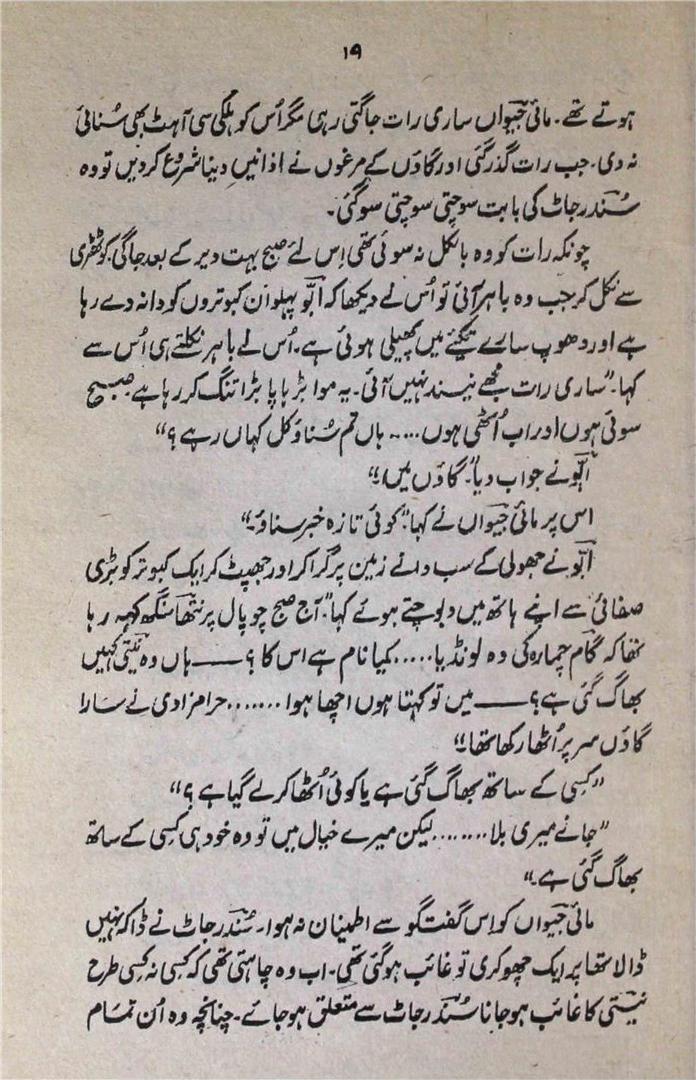 ۱۹
ہوتے تھے۔ مائی جیواں ساری رات جاگتی رہی مگر اُس کو ہلکی سی آہٹ بھی سُنائی
نہ دی۔ جب رات گذر گئی اور گاؤں کے مرغوں نے اذانیں دینا شروع کردیں تو وہ
سُندر جاٹ کی بابت سوچتی سوچتی سوگئی۔
چونکہ رات کو وہ بالکل نہ سوئی تھی اِس لئے صبح بہت دیر کے بعد جاگی۔ کوٹھڑی
سے نکل کر جب وہ باہر آئی تو اُس نے دیکھا کہ ابّو پہلوان کبوتروں کو دانہ دے رہا
ہے اور دھوپ سارے تکیے میں پھیلی ہوئی ہے۔ اُس نے باہر نکلتے ہی اُس سے
کہا۔ ”ساری رات مجھے نیند نہیں آئی۔ یہ موا بڑھاپا بڑا تنگ کر رہا ہے صبح
سوئی ہوں اور اب اُٹھی ہوں..... ہاں تم سُناؤ کل کہاں رہے؟“
ابّو نے جواب دیا ”گاؤں میں!“
اس پر مائی جیواں نے کہا ”کوئی تازہ خبر سناؤ۔“
ابّو نے جھولی کے سب دانے زمین پر گرا کر اور جھپٹ کر ایک کبوتر کو بڑی
صفائی سے اپنے ہاتھ میں دبوچتے ہوئے کہا ”آج صبح چوپال پر نتھا سنگھ کہہ رہا
تھا کہ گام چمار کی وہ لونڈیا..... کیا نام ہے اس کا؟ —— ہاں وہ نیتی کہیں
بھاگ گئی ہے؟ —— میں تو کہتا ہوں اچھا ہوا ....... حرامزادی نے سارا
گاؤں سر پر اُٹھا رکھا تھا!“
”کسی کے ساتھ بھاگ گئی ہے یا کوئی اُٹھا کر لے گیا ہے؟“
”جانے میری بلا........ لیکن میرے خیال میں تو وہ خود ہی کسی کے ساتھ
بھاگ گئی ہے۔“
مائی جیواں کو اِس گفتگو سے اطمینان نہ ہوا۔ سُندر جاٹ نے ڈاکہ نہیں
ڈالا تھا پر ایک چھوکری تو غائب ہوگئی تھی۔ اب وہ چاہتی تھی کہ کسی نہ کسی طرح
نیتی کا غائب ہوجانا سُندر جاٹ سے متعلق ہوجائے۔ چنانچہ وہ اُن تمام